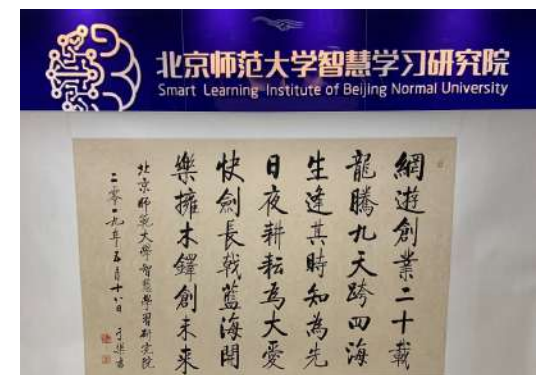 北京师范大学智慧学习研究院
Smart Learning Institute of Beijing Normal University
網遊創業二十載
龍騰九天跨四海
生逢其時知為先
日夜耕耘為大愛
快劍長戟藍海闊
樂擁木鐸創未來
北京師範大學智慧學習研究院
二零一九年五月十八日